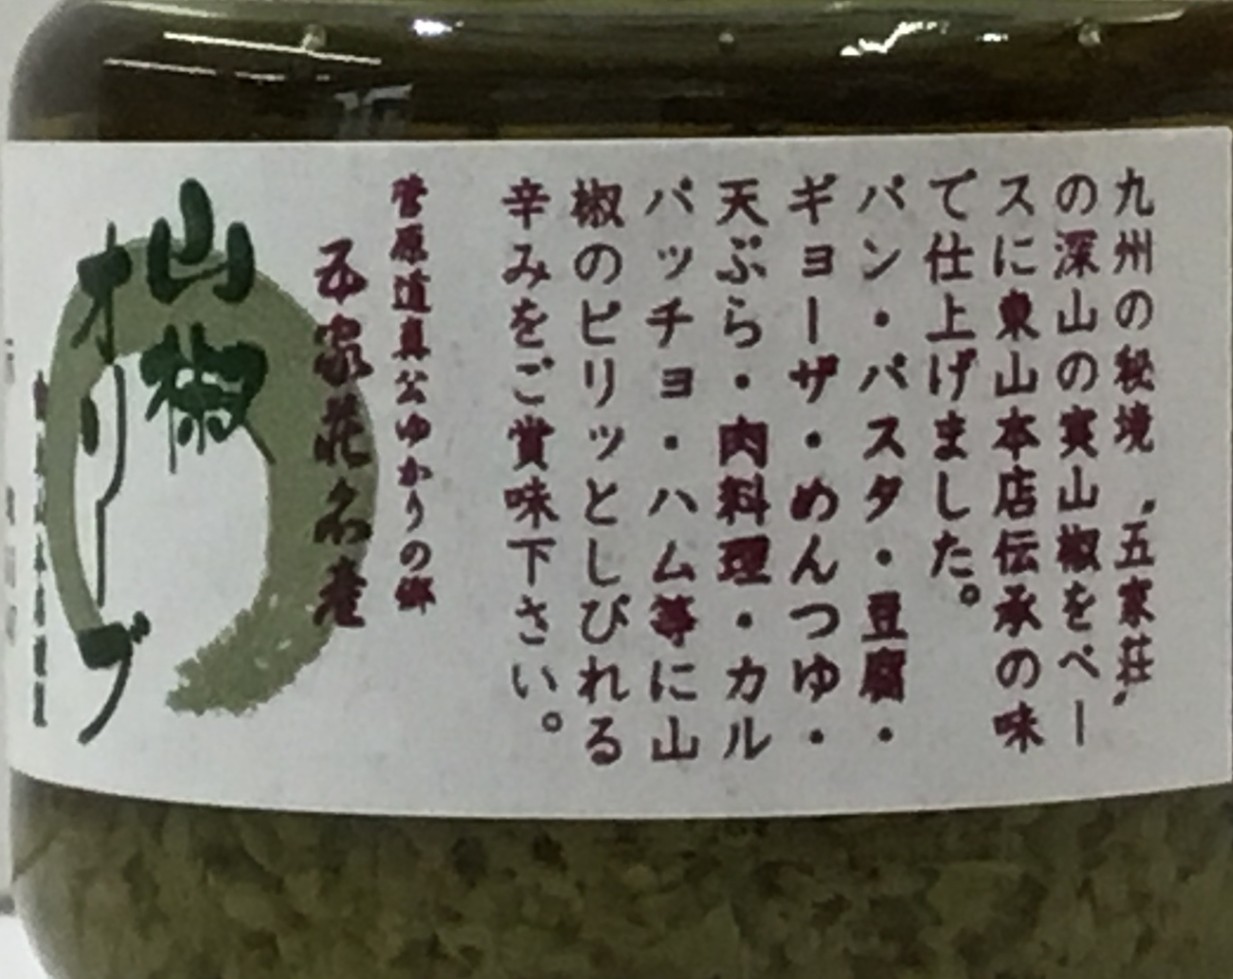 九州の秘境〝五家荘〟
の深山の実山椒をペー
スに東山本店伝承の味
で仕上げました。
パン・パスタ・豆腐・
ギョーザ・めんつゆ・
天ぷら・肉料理・カル
パッチョ・ハム等に山
椒のピリッとしびれる
辛みをご賞味下さい。
菅原道真公ゆかりの郷
五家荘名産
山椒
オリーブ